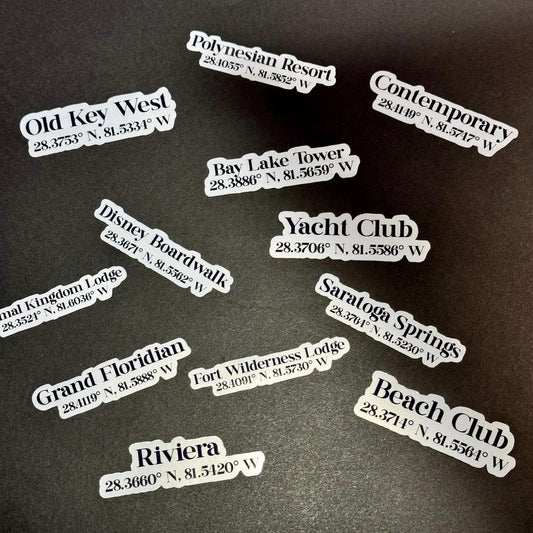 Polynesian Resort
28.4055° N, 81.5852° W
Contemporary
28.4149° N, 81.5747° W
Old Key West
28.3753° N, 81.5334° W
Bay Lake Tower
28.3886° N, 81.5659° W
Disney Boardwalk
28.3671° N, 81.5562° W
Yacht Club
28.3706° N, 81.5586° W
mal Kingdom Lodge
28.3521° N, 81.6036° W
Saratoga Springs
28.3764° N, 81.5230° W
Grand Floridian
28.4119° N, 81.5888° W
Fort Wilderness Lodge
28.4091° N, 81.5730° W
Beach Club
28.3714° N, 81.5564° W
Riviera
28.3660° N, 81.5420° W